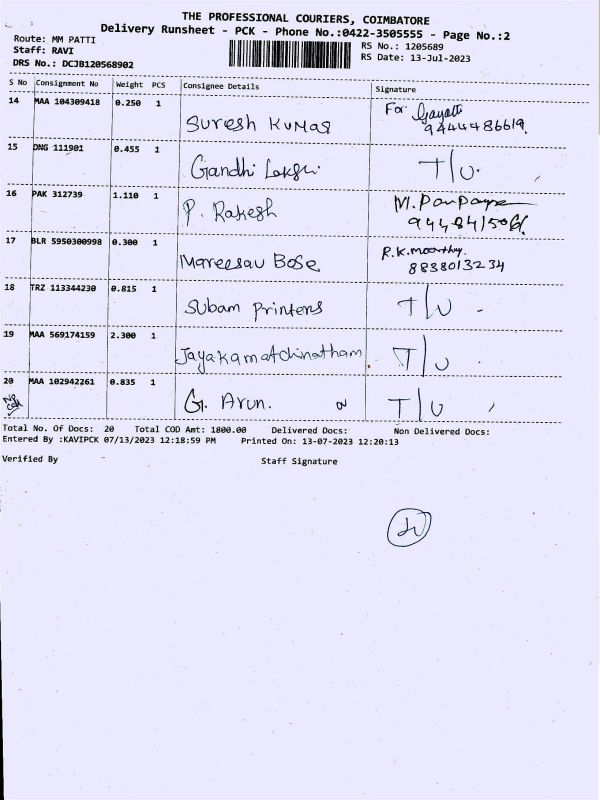 THE PROFESSIONAL COURIERS, COIMBATORE
Delivery Runsheet - PCK - Phone No.:0422-3505555 - Page No.:2
Route: MM PATTI
RS No.: 1205689
Staff: RAVI
RS Date: 13-Jul-2023
DRS No.: DCJB120568902
S No Consignment No Weight PCS Consignee Details Signature
14 MAA 104309418 0.250 1 Suresh Kumar For Gayatri
9444486619
15 DNG 111901 0.455 1 Gandhi T/U.
16 PAK 312739 1.110 1 P. Rakesh
17 BLR 5950300998 0.300 1 Mareesau Bose R.K.moorthy.
8838013234
18 TRZ 113344230 0.815 1 Subam Printers T/U -
19 MAA 569174159 2.300 1 Jayakamatchinatham. T/U -
20 MAA 102942261 0.835 1 G. Arun. T/U
No
Total No. Of Docs: 20 Total COD Amt: 1800.00 Delivered Docs: Non Delivered Docs:
Entered By :KAVIPCK 07/13/2023 12:18:59 PM Printed On: 13-07-2023 12:20:13
Verified By Staff Signature